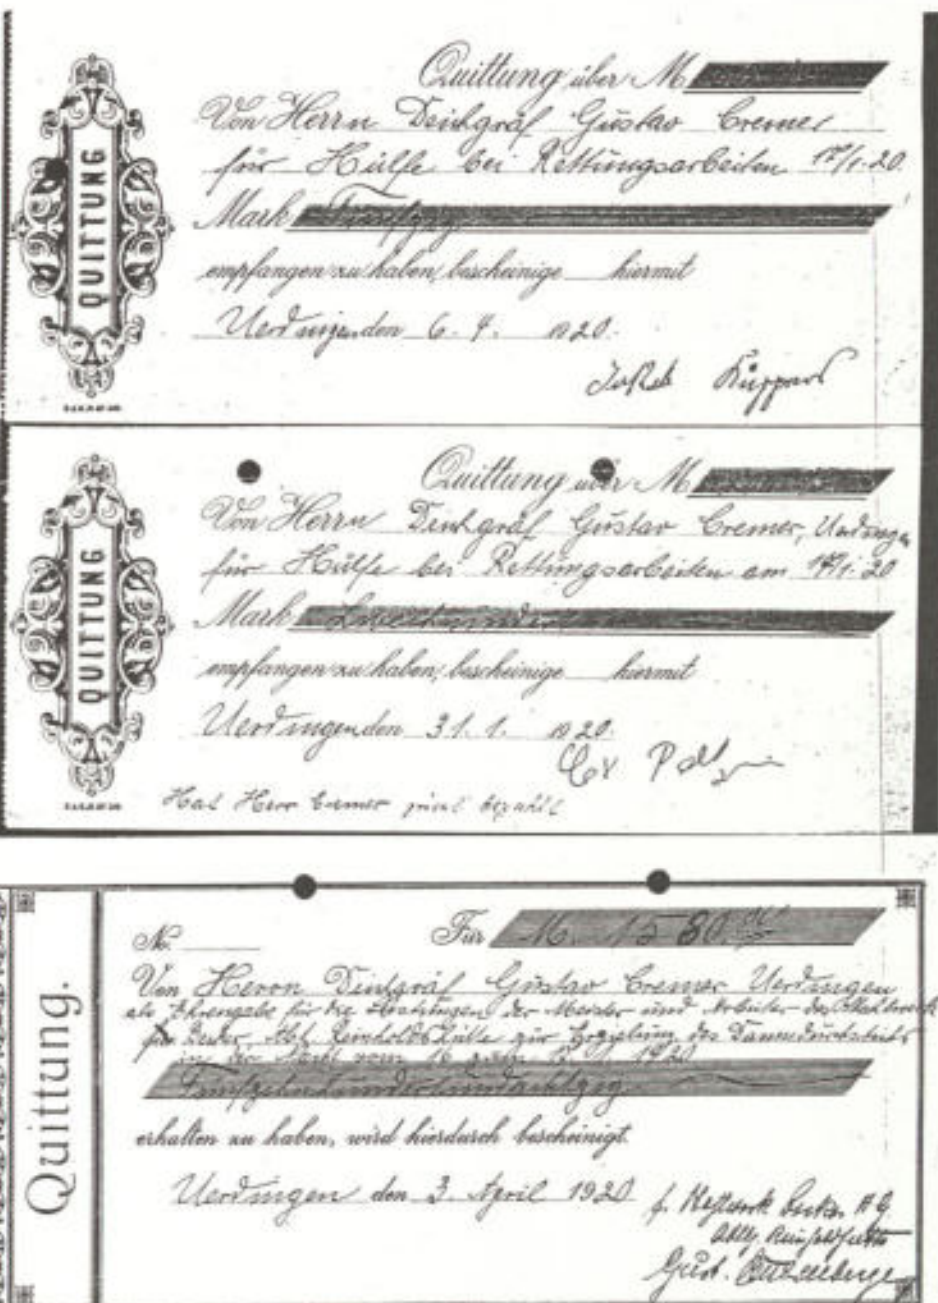 QUITTUNG
Quittung über M
Von Herrn Deichgräf Gustav Cremer
für Hülfe bei Rettungsarbeiten 17/1.20
Mark Fünfzig
empfangen zu haben, bescheinige hiermit
Uerdingen den 6. 4. 1920.
Jakob Küppers
QUITTUNG
Quittung über M
Von Herrn Deichgräf Gustav Cremer, Uerdingen
für Hülfe bei Rettungsarbeiten am 17/1.20
Mark Zweihundert
empfangen zu haben, bescheinige hiermit
Uerdingen den 31. 1. 1920.
Hat Herr Cremer privat bezahlt
Quittung.
No. Für M. 1580.
Von Herrn Deichgräf Gustav Cremer Uerdingen
als Ehrengabe für die der Meister und Arbeiter des Stahlwerk
Becker, Abt. Reinholdshütte zur des Dammdurchstichs
in der Nacht vom 16 zum 1920
Fünfzehnhundertundachtzig
erhalten zu haben, wird hierdurch bescheinigt.
Uerdingen den 3. April 1920
f. Stahlwerk Becker A G.
Abtlg. Reinholdhütte
Gust.